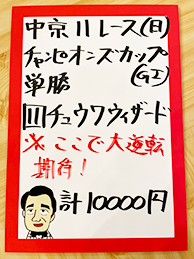 中京11レース(日)
チャンピオンズカップ
(GI)
単勝
11チュウワウィザード
※ここで大逆転
期待!
計10000円